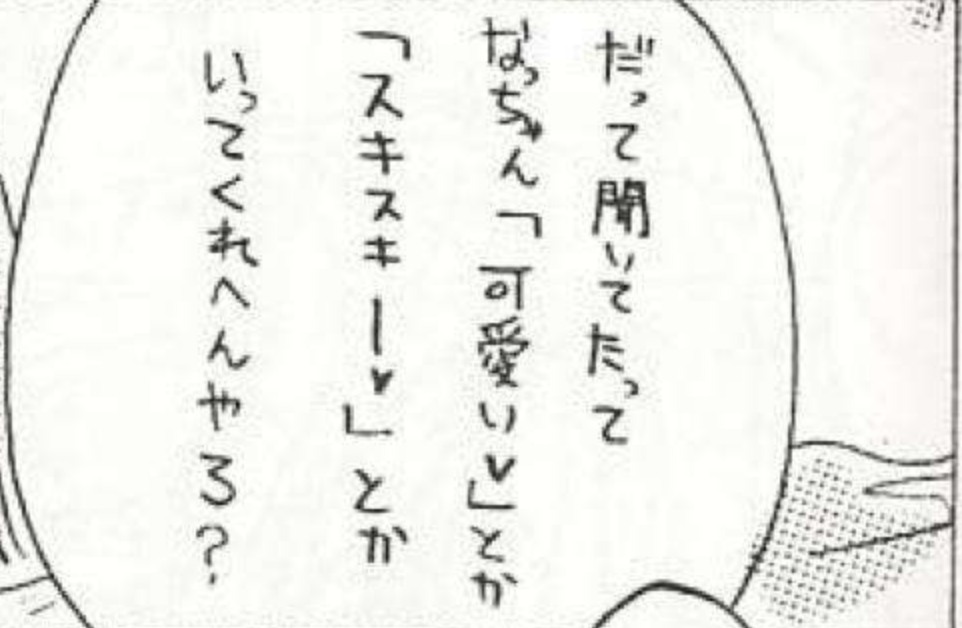 だって聞いてたって
なっちゃん「可愛い♥」とか
「スキスキー♥」とか
いってくれへんやろ？